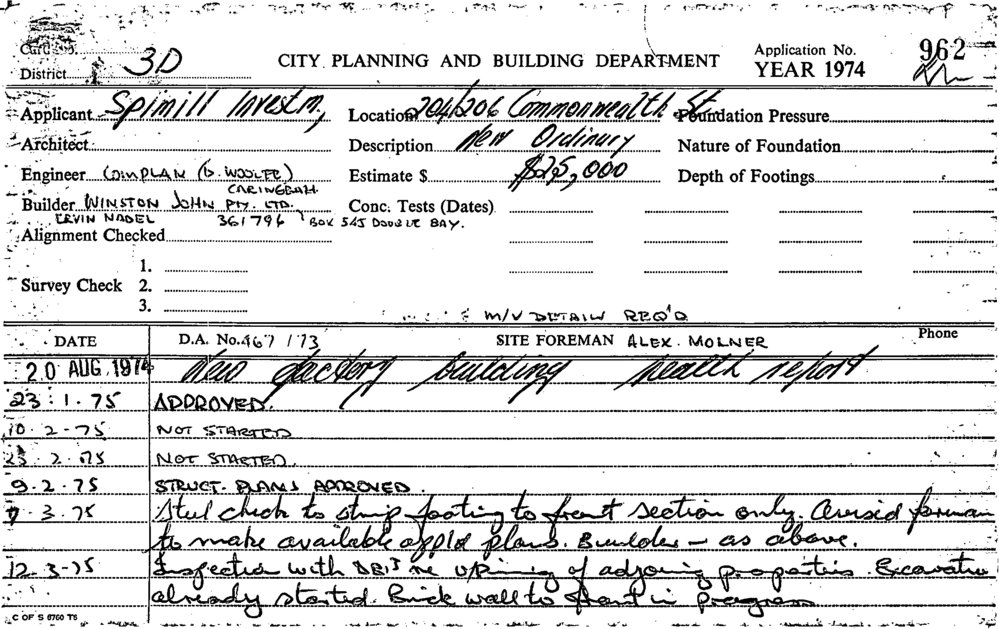 Card No.
District 3D
CITY PLANNING AND BUILDING DEPARTMENT
Application No. 962
YEAR 1974
Applicant Spimill Investm,
Location 204/206 Commonwealth St
Foundation Pressure
Architect
Description New Ordinary
Nature of Foundation
Engineer COMPLAN (G. WOOLFE)
CARINGBAH
Estimate $ $25,000
Depth of Footings
Builder WINSTON JOHN PTY. LTD.
Conc. Tests (Dates)
ERVIN NADEL 361796 BOX 545 DOUBLE BAY.
Alignment Checked
1.
Survey Check 2.
3.
& M/V DETAIL REQ'D
DATE D.A. No. 467/73 SITE FOREMAN ALEX. MOLNER Phone
20 AUG 1974 New factory building health report
23.1.75 APPROVED.
10.2.75 NOT STARTED
23.2.75 NOT STARTED.
9.2.75 STRUCT. PLANS APPROVED.
7.3.75 Steel check to strip footing to front section only. Advised foreman
to make available app'd plans. Builder - as above.
12-3-75 Inspection with re of adjoining properties. Excavation
already started. Brick wall to front in progress
C OF S 6760 T6